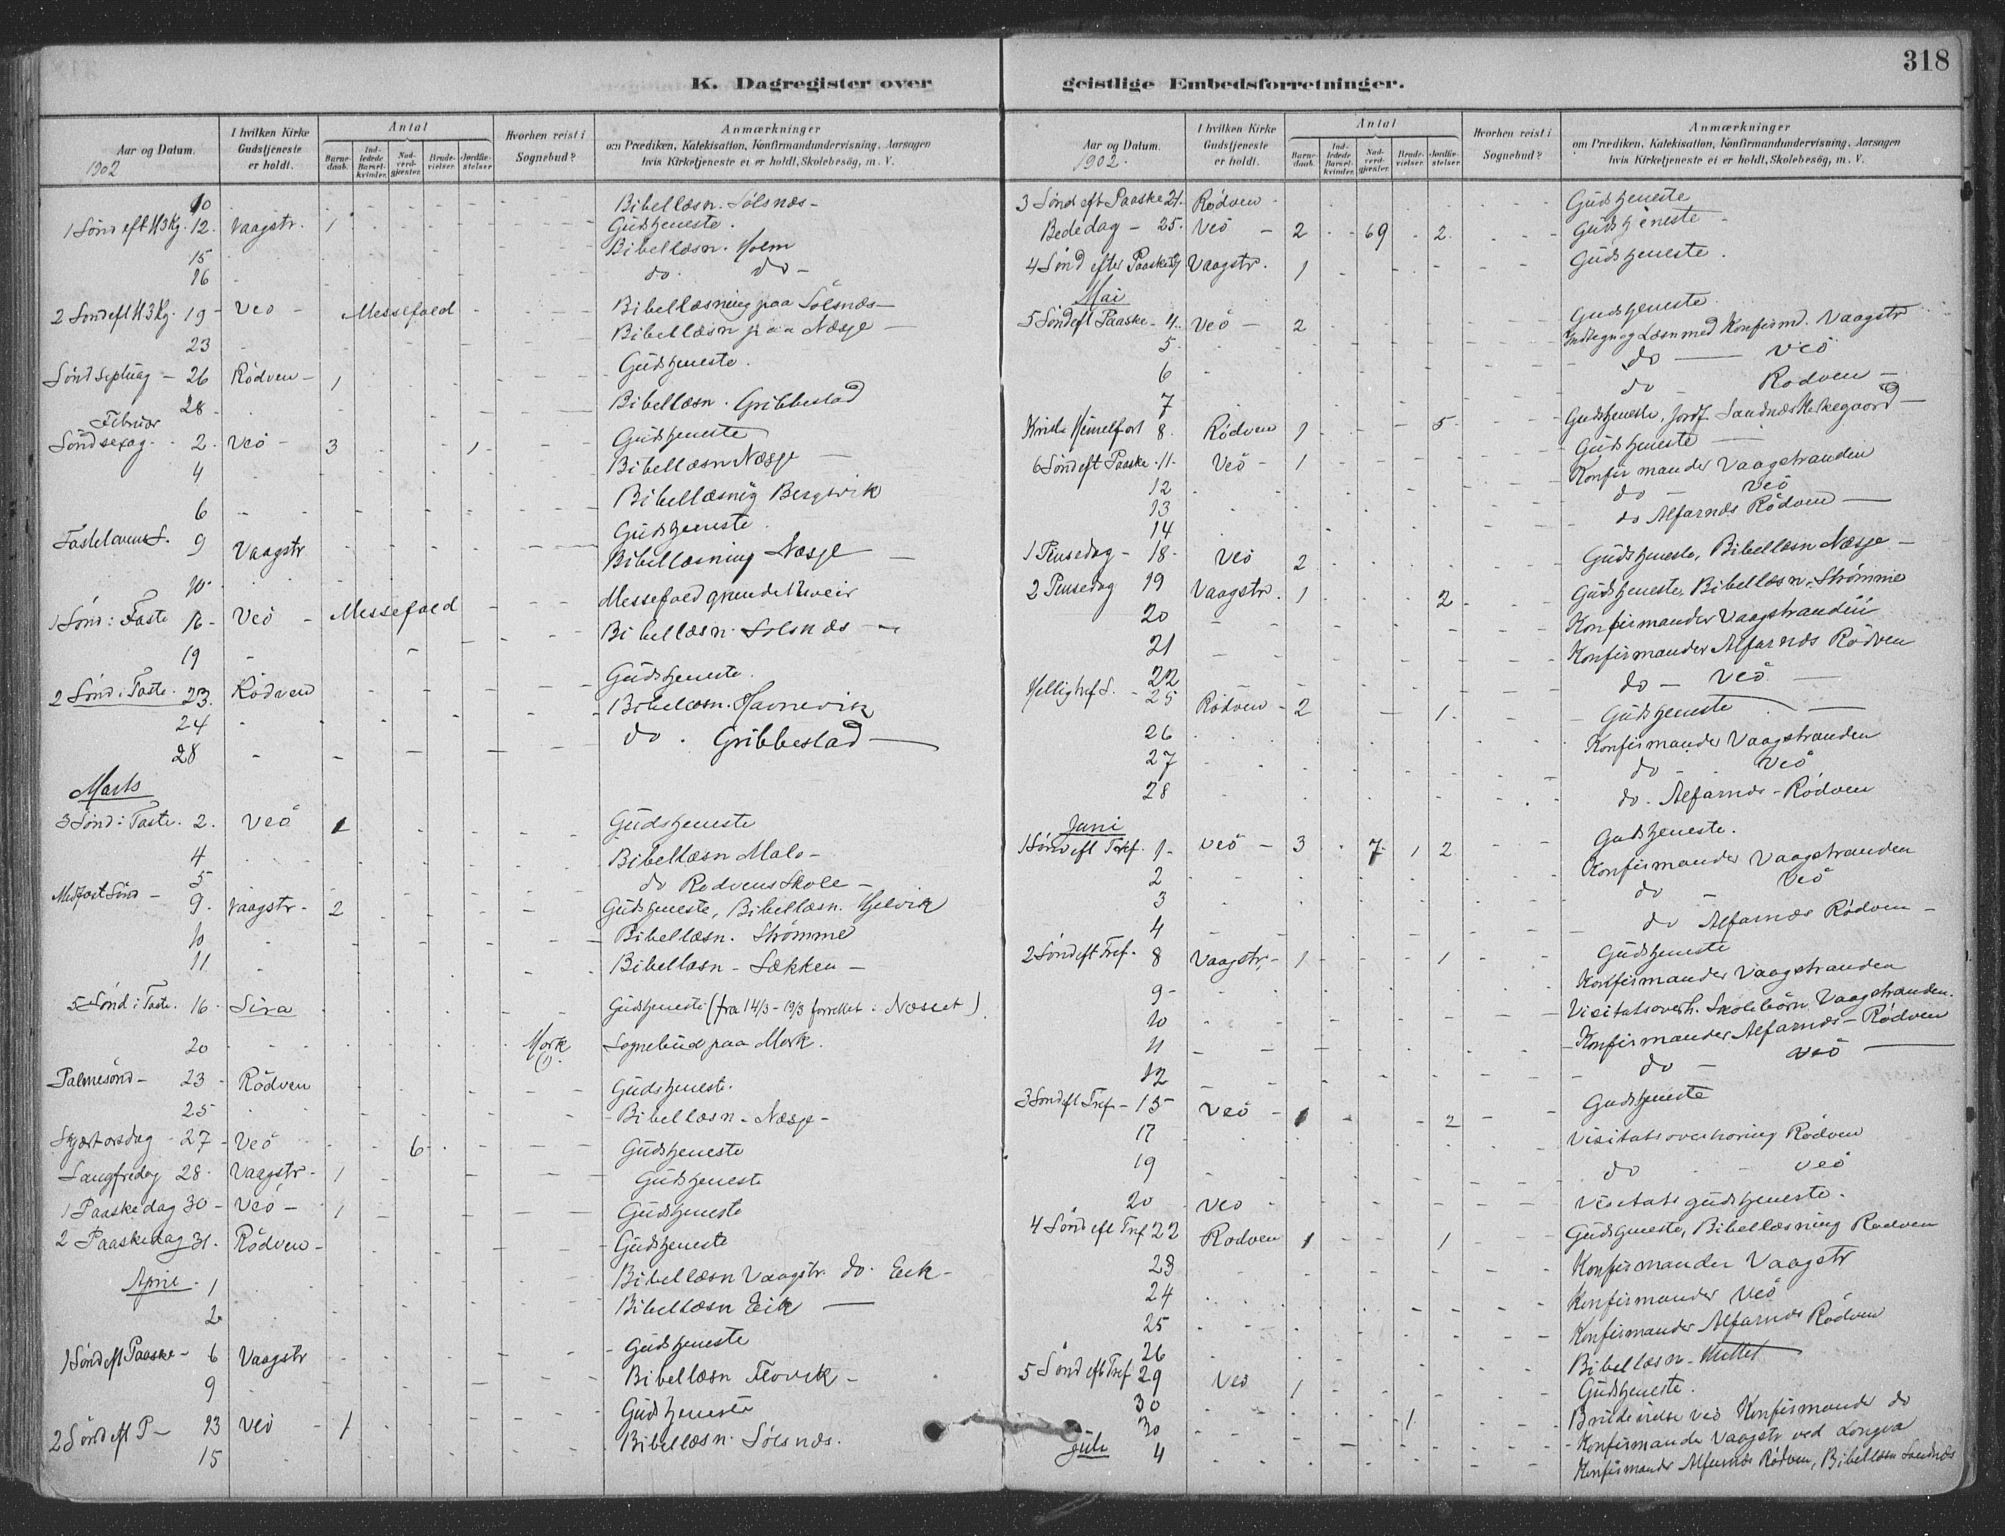 318
K. Dagregister over
Aar og Datum.
1902
I hvilken Kirke
Gudstjeneste
er holdt.
Antal
Barne-
daab.
Ind-
ledede
Barsel-
kvinder.
Nad-
verd-
gjester.
Brude-
vielser.
Jordfæ-
stelser
Hvorhen reist i
Sognebud?
Anmærkninger
om Prædiken, Katekisation, Konfirmandundervisning, Aarsagen
hvis Kirketjeneste ei er holdt, Skolebesög, m. V.
10 Bibellæsn. Sölsnæs -
1 Sönd eft H3Kg. 12. Vaagstr. 1 Gudstjeneste.
15 Bibellæsn. Holm
16 do. do -
2 Sönd eft H3Kg. 19 - Veö - Messefald Bibellæsning paa Sölsnæs -
23 Bibellæsn paa Næsje -
Sönd Septuag - 26 Rödven - 1 Gudstjeneste.
28 Bibellæsn. Gribbestad
Februar
Sönd sexag. 2. Veö - 3 1 Gudstjeneste
4 Bibellæsn Næsje -
6 Bibellæsnig Bergsvik
Fastelavens S. 9 Vaagstr Gudstjeneste.
10 Bibellæsning Næsje -
1 Sönd i Faste 16 - Veö - Messefald Messefald grundet Uveir
19 Bibellæsn. Sölsnæs -
2 Sönd i Faste. 23. Rödven Gudstjeneste.
24 Bibellæsn. Havnevik
28 do. Gribbestad -
Marts
3 Sönd i Faste. 2. Veö 1 Gudstjeneste
4 Bibellæsn Malo -
5 do Rödvens Skole -
Midfast Sönd - 9. Vaagstr - 2 Gudstjeneste, Bibellæsn. Hjelvik
10 Bibellæsn. Strömme
11 Bibellæsn - Sækken -
5 Sönd i Faste. 16 Sira Gudstjeneste (fra 14/3 - 19/3 forrettet i Næsset).
20 Mork Sognebud paa Mork.
Palmesönd - 23 Rödven Gudstjeneste.
25 Bibellæsn - Næsje -
Skjærtorsdag 27 - Veö 6 Gudstjeneste
Langfredag 28 Vaagstr - 1 Gudstjeneste
1 Paaskedag 30 - Veö - 1 Gudstjeneste
2 Paaskedag 31. Rödven - Gudstjeneste
April 1 Bibellæsn Vaagstr. do. Eik -
2 Bibellæsn Eik -
1 Sönd eft Paaske - 6 Vaagstr Gudstjeneste
9 Bibellæsn Flovik -
2 Sönd eft P - 13 Veö 1 Gudstjeneste
15 Bibellæsn. Sölsnæs.
geistlige Embedsforretninger.
Aar og Datum.
1902.
I hvilken Kirke
Gudstjeneste
er holdt.
Antal
Barne-
daab.
Ind-
ledede
Barsel-
kvinder.
Nad-
verd-
gjester.
Brude-
vielser.
Jordfæ-
stelser
Hvorhen reist i
Sognebud?
Anmærkninger
om Prædiken, Katekisation, Konfirmandundervisning, Aarsagen
hvis Kirketjeneste ei er holdt, Skolebesög, m. V.
3 Sönd eft Paaske Rödven Gudstjeneste
Bededag - 25. Veö - 2 69 2 Gudstjeneste -
4 Sönd efter Paaske Vaagstr. 1 Gudstjeneste.
Mai
5 Sönd eft Paaske - 4. Veö - 2 Gudstjeneste.
5 Indtegn og Læsn med Konfirmd. Vaagstr
6 do - Veö
7 do - Rödven -
Kristi Himelfart 8. Rödven 1 5 Gudstjeneste, Jordf. Sandnæs
6 Sönd eft Paaske - 11 - Veö - 1 Gudstjeneste -
12 Konfirmander Vaagstranden
13 do - Veö
14 do Alfarnæs Rödven -
1 Pinsedag - 18 - Veö 2 Gudstjeneste, Bibellæsn Næsje -
2 Pinsedag 19 Vaagstr. 1 2 Gudstjeneste, Bibellæsn. Strömme
20 Konfirmander Vaagstranden
21 Konfirmander Alfarnæs Rödven
22 do - Veö -
Helligtref S. - 25 Rödven - 2 1 Gudstjeneste -
26 Konfirmander Vaagstranden
27 do - Veö
28 do. Alfarnæs - Rödven
Juni
1 Sönd eft Tref. 1 - Veö - 3 7 1 2 Gudstjeneste.
2 Konfirmander Vaagstranden
3 do - Veö
4 do Alfarnæs Rödven -
2 Sönd eft Tref. 8 Vaagstr. - 1 1 Gudstjeneste
9 - Konfirmander Vaagstranden
10 Visitatsoverh. Skolebörn Vaagstranden.
11 Konfirmander Alfarnæs - Rödven
12 do - Veö -
3 Sönd eft Tref - 15 Veö - 1 2 Gudstjeneste
17 Visitatsoverhöring Rödven
19 do - Veö
20 Veö Visitatsgudstjeneste.
4 Sönd eft Tref 22 Rödven 1 1 Gudstjeneste, Bibellæsning Rödven
23 Konfirmander Vaagstr
24 Konfirmander Veö
25 Konfirmander Alfarnæs Rödven
26 Bibellæsn - Mittet
5 Sönd eft Tref 29 Veö 1 Gudstjeneste.
30 1 Brudevielse Veö Konfirmander do
30 Konfirmander Vaagstr ved Longva
Juli 4 Konfirmander Alfarnæs Rödven, Bibellæsn Sandnæs